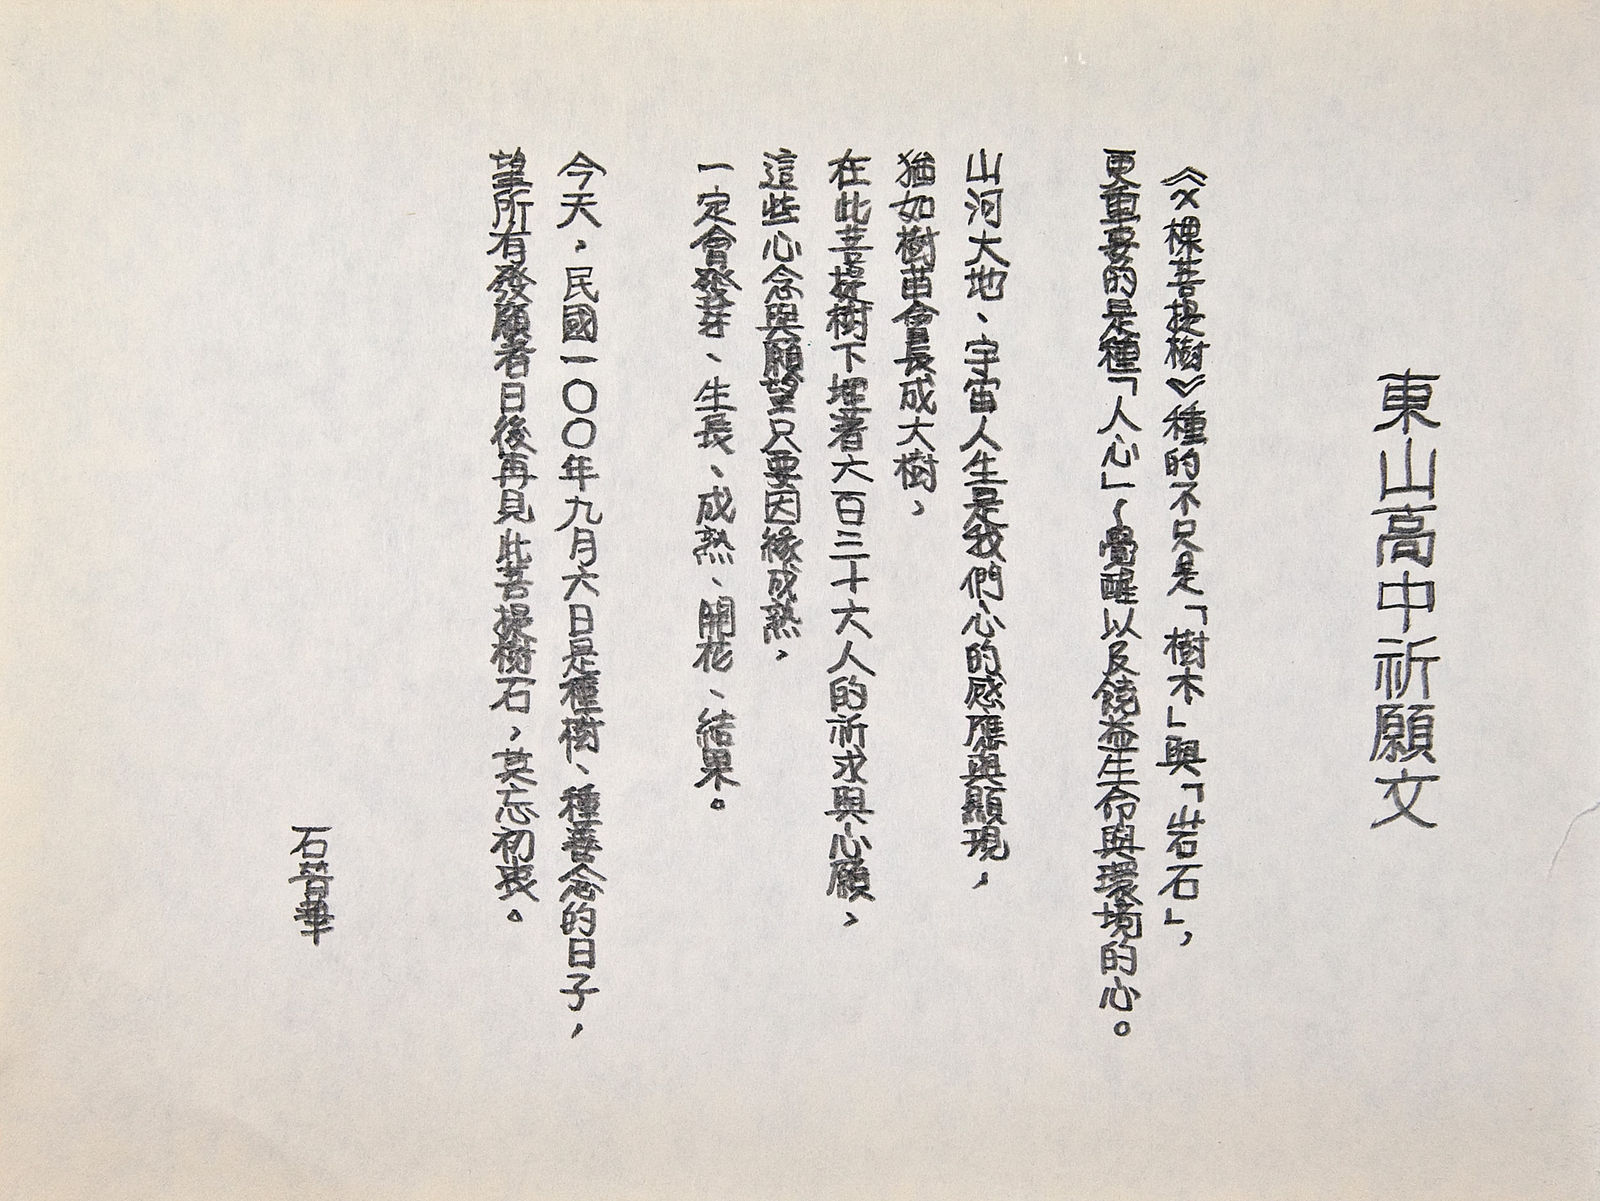 東山高中祈願文
《父棵菩提樹》種的不只是「樹木」與「岩石」，
更重要的是種「人心」～覺醒以及饒益生命與環境的心。
山河大地、宇宙人生是我們心的感應與顯現，
猶如樹苗會長成大樹，
在此菩提樹下埋著六百三十六人的祈求與心願，
這些心念與願望只要因緣成熟，
一定會發芽、生長、成熟、開花、結果。
今天，民國一〇〇年九月六日是種樹、種善念的日子，
望所有發願者日後再見此菩提樹石，莫忘初衷。
石晉華